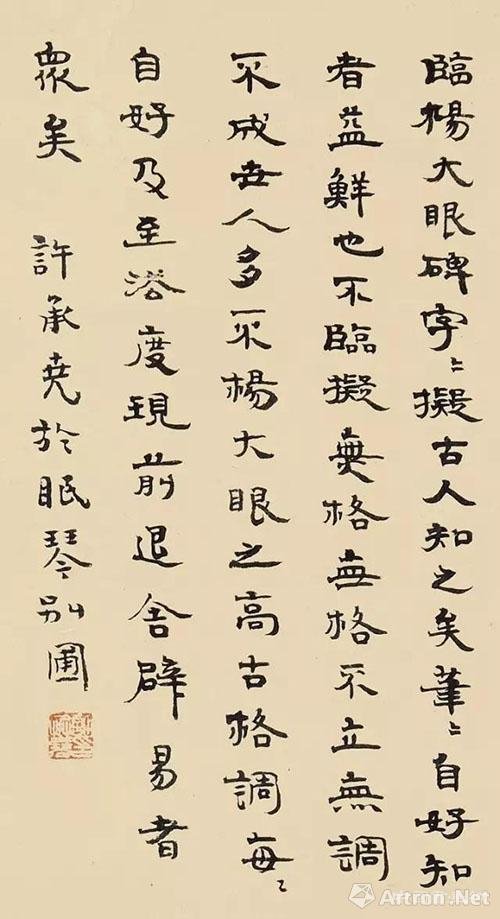 臨楊大眼碑字〻擬古人知之矣筆〻自好知
者益鮮也不臨擬無格無格不立無調
不成世人多不楊大眼之高古格調每〻
自好及至法度現前退舍辟易者
眾矣 許承堯於眠琴别圃
Artron.Net